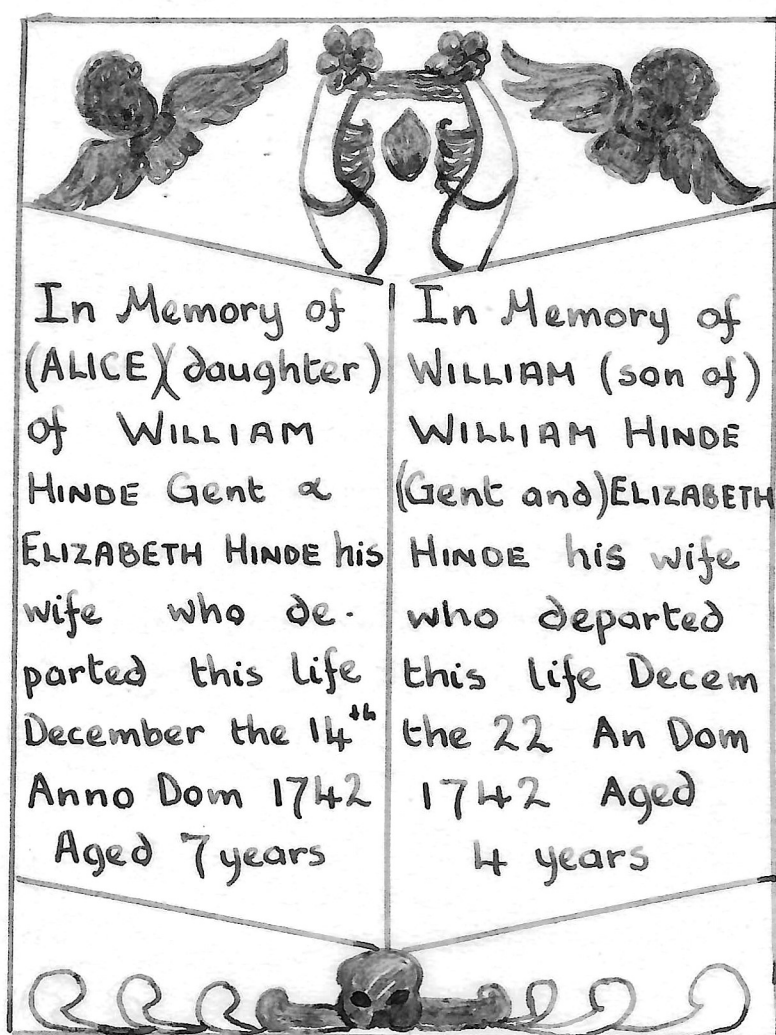 In Memory of
(ALICE)(daughter)
of WILLIAM
HINDE Gent &
ELIZABETH HINDE his
wife who de-
parted this life
December the 14th
Anno Dom 1742
Aged 7 years
In Memory of
WILLIAM (son of)
WILLIAM HINDE
(Gent and) ELIZABETH
HINDE his wife
who departed
this life Decem
the 22 An Dom
1742 Aged
4 years